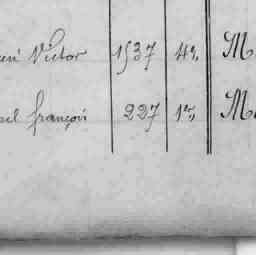 Victor 1537 4e, M
françois 227 1er, M